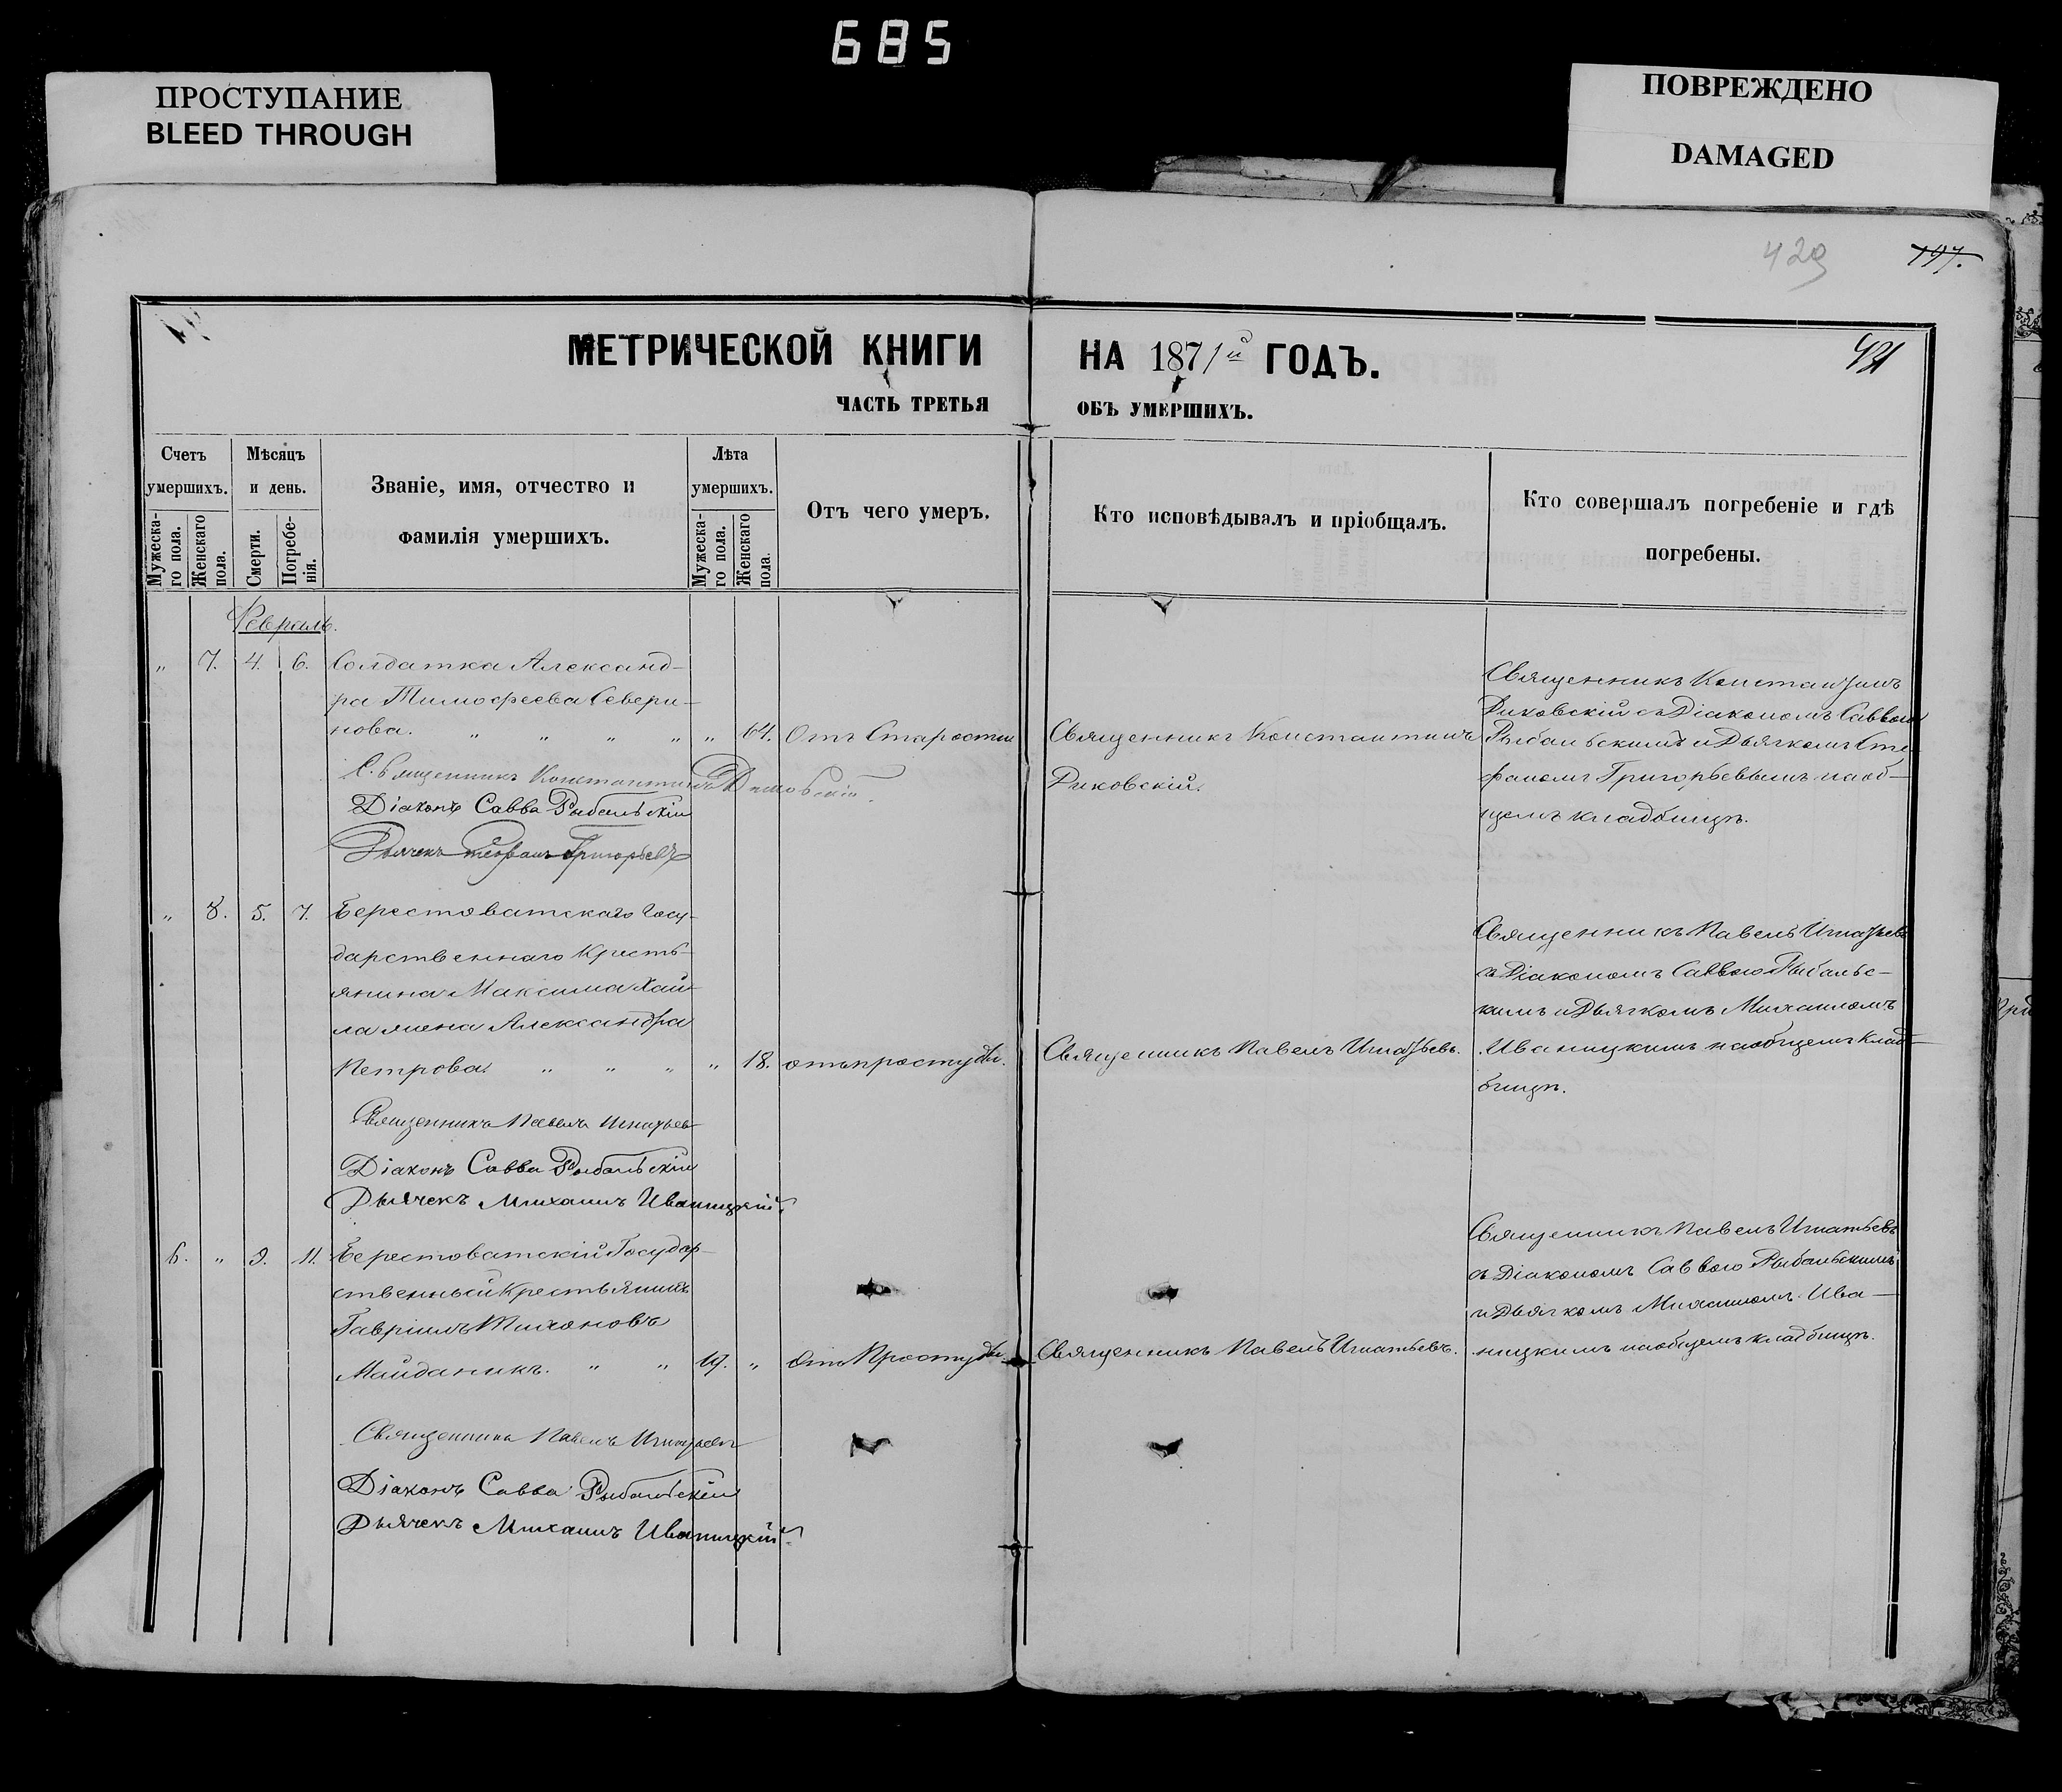 685
ПРОСТУПАНИЕ
BLEED THROUGH
ПОВРЕЖДЕНО
DAMAGED
429
197.
421
МЕТРИЧЕСКОЙ КНИГИ НА 1871й ГОДЪ.
ЧАСТЬ ТРЕТЬЯ ОБЪ УМЕРШИХЪ.
Счетъ умершихъ.
Мужеска-го пола.
Женскаго пола.
Мѣсяцъ и день.
Смерти.
Погребе-нія.
Званіе, имя, отчество и
фамилія умершихъ.
Лѣта умершихъ.
Мужеска-го пола.
Женскаго пола.
Отъ чего умеръ.
Кто исповѣдывалъ и пріобщалъ.
Кто совершалъ погребеніе и гдѣ
погребены.
Февраль.
„ 7. 4. 6. Солдатка Александ-
ра Тимофеева Севери-
нова. „ „ „ „ „ 64. Отъ Старости
Священникъ Константинъ
Диковскій.
Священникъ Константинъ
Диковскій съ Діакономъ Саввою
Рыбальскимъ и Дьячкомъ Сте-
фаномъ Григорьевымъ наоб-
щемъ кладбищѣ.
Священникъ Константинъ Диковскій.
Діаконъ Савва Рыбальскій
Дьячекъ Стефанъ Григорьевъ
„ 8. 5. 7. Берестоватскаго Госу-
дарственнаго Кресть-
янина Максима Хай-
ла жена Александра
Петрова. „ „ „ „ 18. отъ простуды.
Священникъ Павелъ Игнатьевъ.
Священникъ Павелъ Игнатьевъ
съ Діакономъ Саввою Рыбальс-
кимъ и Дьячкомъ Михаиломъ
Иваницкимъ наобщемъ клад-
бищѣ.
Священникъ Павелъ Игнатьевъ
Діаконъ Савва Рыбальскій
Дьячекъ Михаилъ Иваницкій.
6. „ 9. 11. Берестоватскій Государ-
ственный Крестьянинъ
Гавріилъ Тихоновъ
Майданикъ. „ „ 19. „ Отъ Простуды.
Священникъ Павелъ Игнатьевъ.
Священникъ Павелъ Игнатьевъ
съ Діакономъ Саввою Рыбальскимъ
и Дьячкомъ Михаиломъ Ива-
ницкимъ наобщемъ кладбищѣ.
Священникъ Павелъ Игнатьевъ
Діаконъ Савва Рыбальскій
Дьячекъ Михаилъ Иваницкій.